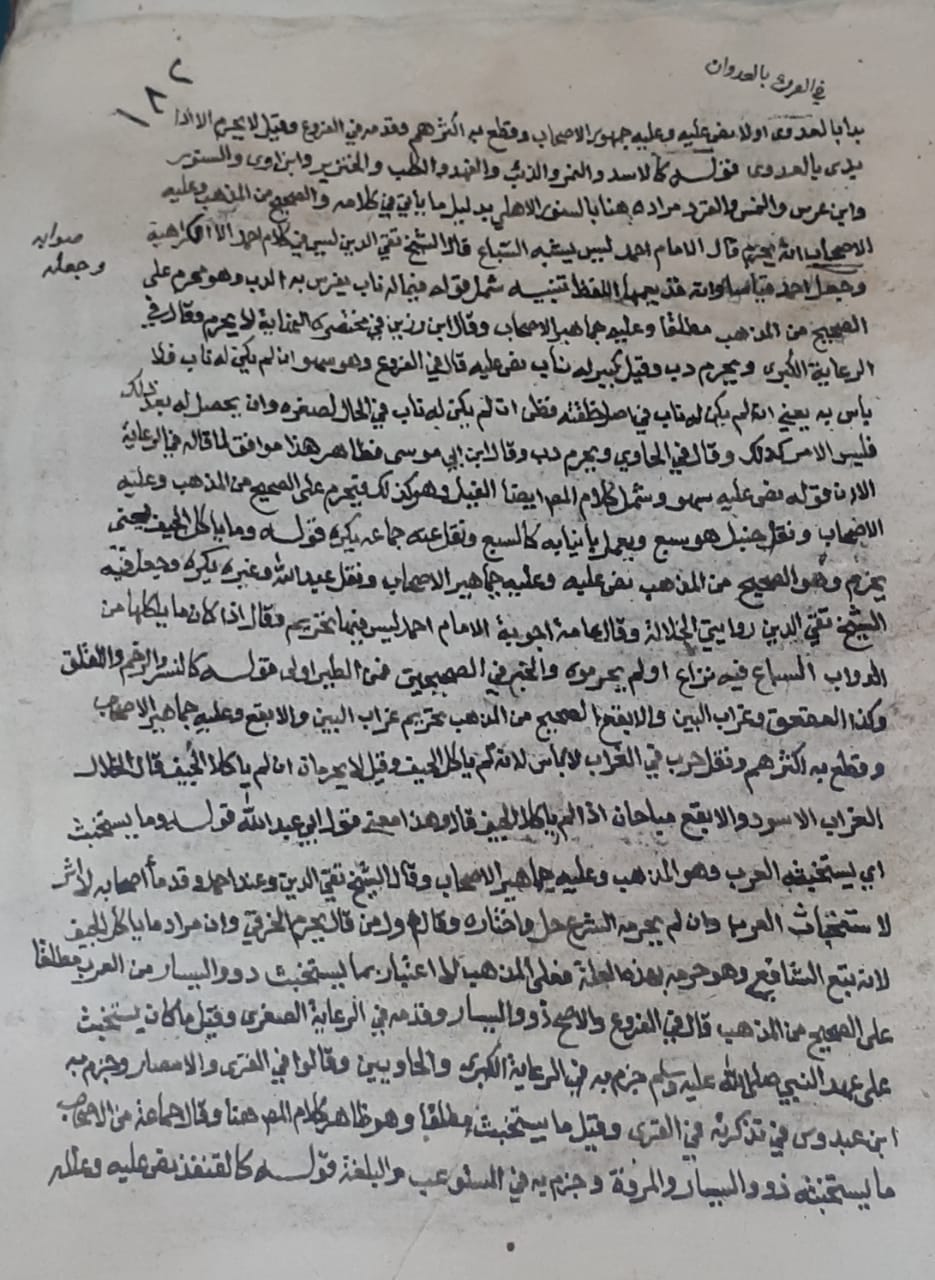 في الفروع بالعدوان
١٨٢
بدا بالعدوى اولا نص عليه وعليه جمهور الاصحاب وقطع به اكثرهم وقدمه في الفروع وقيل لا يحرم الا اذا
بدى بالعدوى قوله كالاسد والنمر والذئب والفهد والكلب والخنزير وابن اوى والسنور
وابن عرس والنمس والقرد مراده هنا بالسنور الاهلي بدليل ما يأتي في كلامه والصحيح من المذهب وعليه
الاصحاب انه يحرم قال الامام احمد ليس يشبه السباع قال الشيخ تقي الدين ليس في كلام احمد الا الكراهة
صوابه وجعله
وجعل احمد قياسا وانه قد يعمها اللفظ تنبيه شمل قوله فيما له ناب يفرس به الدب وهو محرم على
الصحيح من المذهب مطلقا وعليه جماهير الاصحاب وقال ابن رزين في مختصره النهاية لا يحرم وقال في
الرعاية الكبرى ويحرم دب وقيل كبير له ناب نص عليه قال في الفروع وهو سهو ان لم يكن له ناب فلا
باس به يعني ان لم يكن له ناب في اصل خلقته فظن ان لم يكن له ناب في الحال لصغره وان يحصل له بعد ذلك
فليس الامر كذلك وقال في الحاوي ويحرم دب وقال ابن ابي موسى فظاهر هذا موافق لما قاله في الرعاية
الا ان قوله نص عليه سهو وشمل كلام المص ايضا الفيل وهو كذلك فيحرم على الصحيح من المذهب وعليه
الاصحاب ونقل حنبل هو سبع ويعمل بانيابه كالسبع ونقل عنه جماعه يكره قوله وما ياكل الجيف يعني
يحرم وهو الصحيح من المذهب نص عليه وعليه جماهير الاصحاب ونقل عبد الله وغيره يكره وجعل فيه
الشيخ تقي الدين روايتي الجلالة وقال عامة اجوبة الامام احمد ليس فيها تحريم وقال اذا كان ما ياكلها من
الدواب السباع فيه نزاع او لم يحرموه والخبر في الصحيحين فمن الطير اولى قوله كالنسر والرخم واللقلق
وكذا العقعق وغراب البين والابقع الصحيح من المذهب تحريم غراب البين والابقع وعليه جماهير الاصحاب
وقطع به اكثرهم ونقل حرب في الغراب لا باس لانه لم ياكل الجيف وقيل لا يحرمان ان لم ياكلا الجيف قال الخلال
الغراب الاسود والابقع مباحان اذا لم ياكلا الجيف قال وهذا معنى قول ابي عبد الله قوله وما يستخبث
اي يستخبثه العرب وهو المذهب وعليه جماهير الاصحاب وقال الشيخ تقي الدين وعند احمد وقدما اصحابه لا اثر
لاستخباث العرب وان لم يحرمه الشرع حل واختاره وقال واول من قال يحرم الخرقي وان مراده ما ياكل الجيف
لانه تبع الشافعي وهو حرمه بهذه العلة فعلى المذهب الاعتبار بما يستخبث ذوو اليسار من العرب مطلقا
على الصحيح من المذهب قال في الفروع والاصح ذوو اليسار وقدمه في الرعاية الصغرى وقيل ما كان يستخبث
على عهد النبي صلى الله عليه وسلم جزم به في الرعاية الكبرى والحاويين وقالوا في القرى والامصار وجزم به
ابن عبدوس في تذكرته في القرى وقيل ما يستخبث مطلقا وهو ظاهر كلام المص هنا وقال جماعة من الاصحاب
ما يستخبثه ذوو اليسار والمروة وجزم به في المستوعب والبلغة قوله كالقنفذ نص عليه وعلله